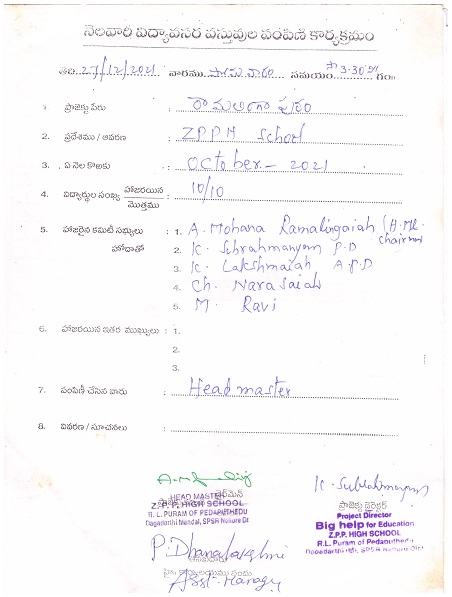 నెలవారీ విద్యావసర వస్తువుల పంపిణి కార్యక్రమం
తేది 27/12/2021 వారము సోమవారం సమయం సా 3-30 గం॥
1. ప్రాజెక్టు పేరు : రామలింగా పురం
2. ప్రదేశము / ఆవరణ : ZPPH School
3. ఏ నెల కొఱకు : October - 2021
4. విద్యార్థుల సంఖ్య హాజరయిన / మొత్తము : 10/10
5. హాజరైన కమిటీ సభ్యులు : 1. A. Mohana Ramalingaiah (H.M.
Chairman
హోదాతో 2. K. Subrahmanyam P.D
3. K. Lakshmaiah A.P.D
4. Ch. Narasaiah
5. M. Ravi
6. హాజరయిన ఇతర ముఖ్యులు : 1.
2.
3.
7. పంపిణీ చేసిన వారు : Head master
8. వివరణ / సూచనలు :
K. Subrahmanyam
HEAD MASTER
Z.P.P. HIGH SCHOOL
R. L. PURAM OF PEDAPUTHEDU
Dagadarthi Mandal, SPSR Nellore Dt
ప్రాజెక్టు డైరెక్టర్
Project Director
Big help for Education
Z.P.P. HIGH SCHOOL
R.L. Puram of Pedaputhedu
Dagadarthi (M), SPSR Nellore Dist
P. Dhanalakshmi
Asst. Manager